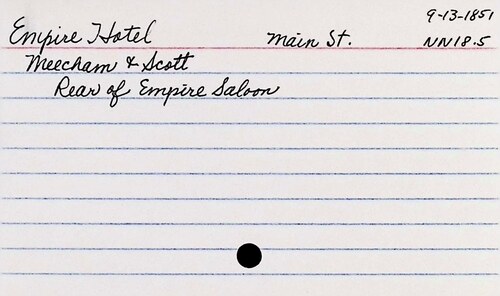 9-13-1851
Empire Hotel Main St. NN18.5
Meecham & Scott
Rear of Empire Saloon